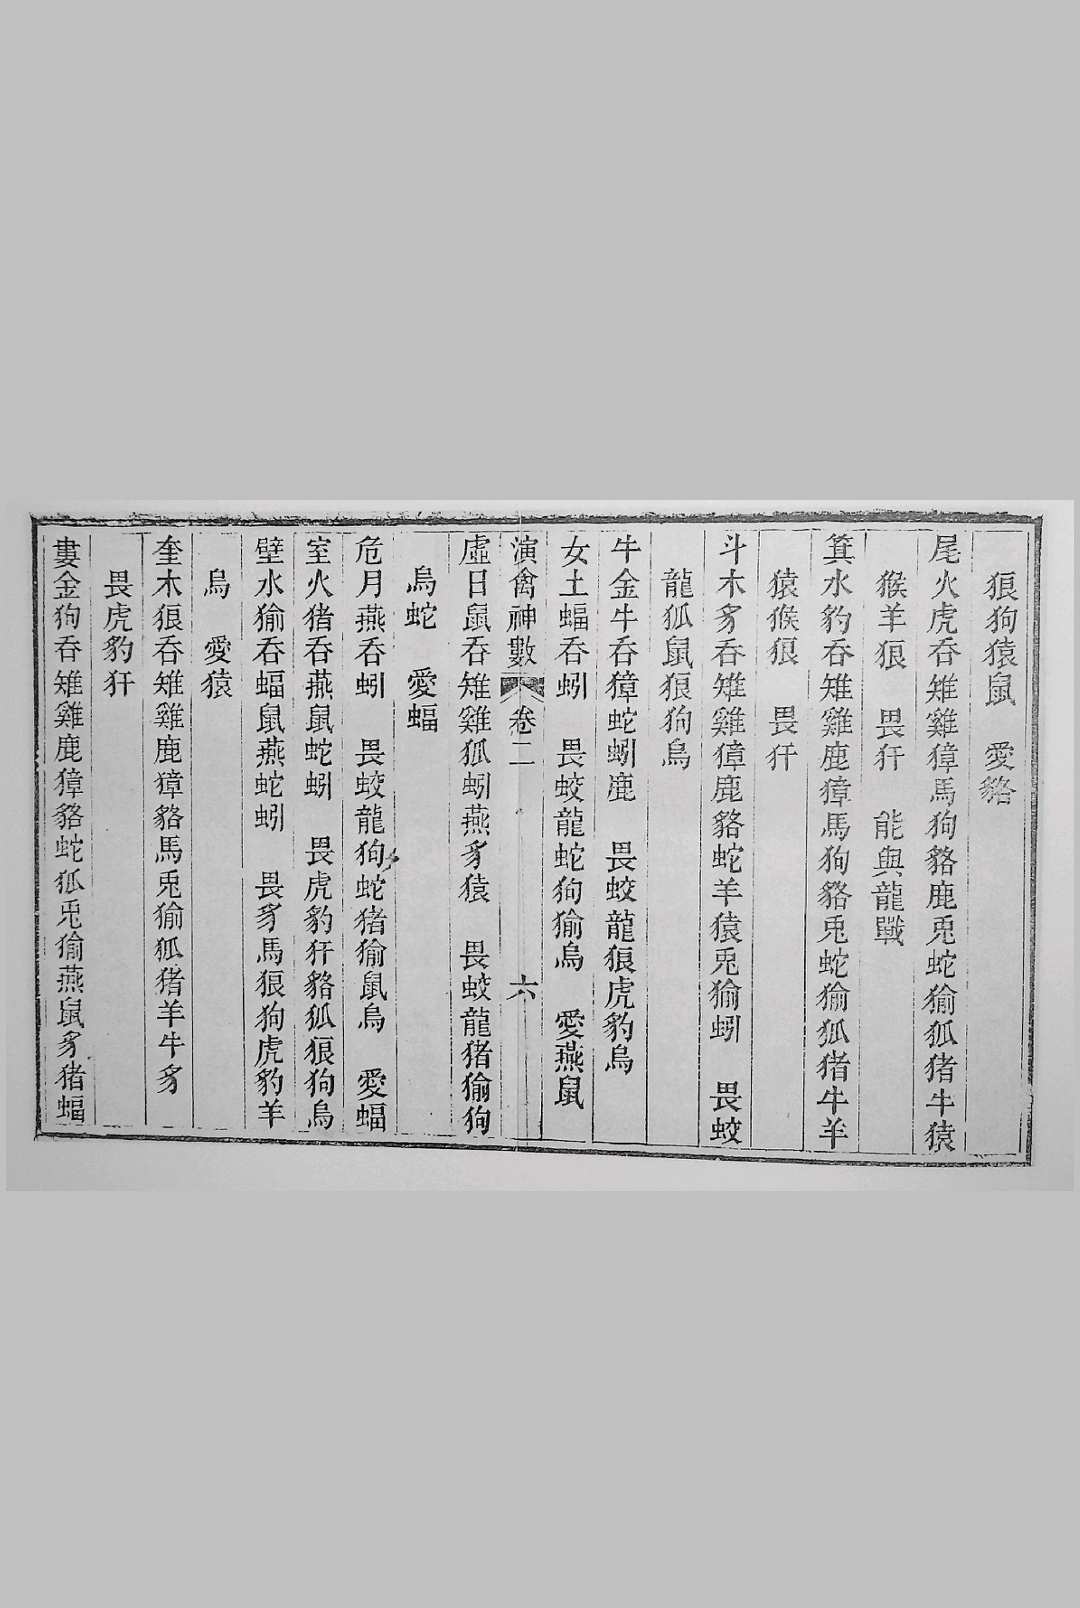 狼狗猿鼠　愛貉
尾火虎吞雉雞獐馬狗貉鹿兎蛇㺄狐猪牛猿
猴羊狼　畏犴　能與龍戰
箕水豹吞雉雞鹿獐馬狗貉兎蛇㺄狐猪牛羊
猿猴狼　畏犴
斗木豸吞雉雞獐鹿貉蛇羊猿兎㺄蚓　畏蛟
龍狐鼠狼狗烏
牛金牛吞獐蛇蚓鹿　畏蛟龍狼虎豹烏
女土蝠吞蚓　畏蛟龍蛇狗㺄烏　愛燕鼠
演禽神數　卷二　六
虛日鼠吞雉雞狐蚓燕豸猿　畏蛟龍猪㺄狗
烏蛇　愛蝠
危月燕吞蚓　畏蛟龍狗蛇猪㺄鼠烏　愛蝠
室火猪吞燕鼠蛇蚓　畏虎豹犴貉狐狼狗烏
壁水㺄吞蝠鼠燕蛇蚓　畏豸馬狼狗虎豹羊
烏　愛猿
奎木狼吞雉雞鹿獐貉馬兎㺄狐猪羊牛豸
畏虎豹犴
婁金狗吞雉雞鹿獐貉蛇狐兎㺄燕鼠豸猪蝠